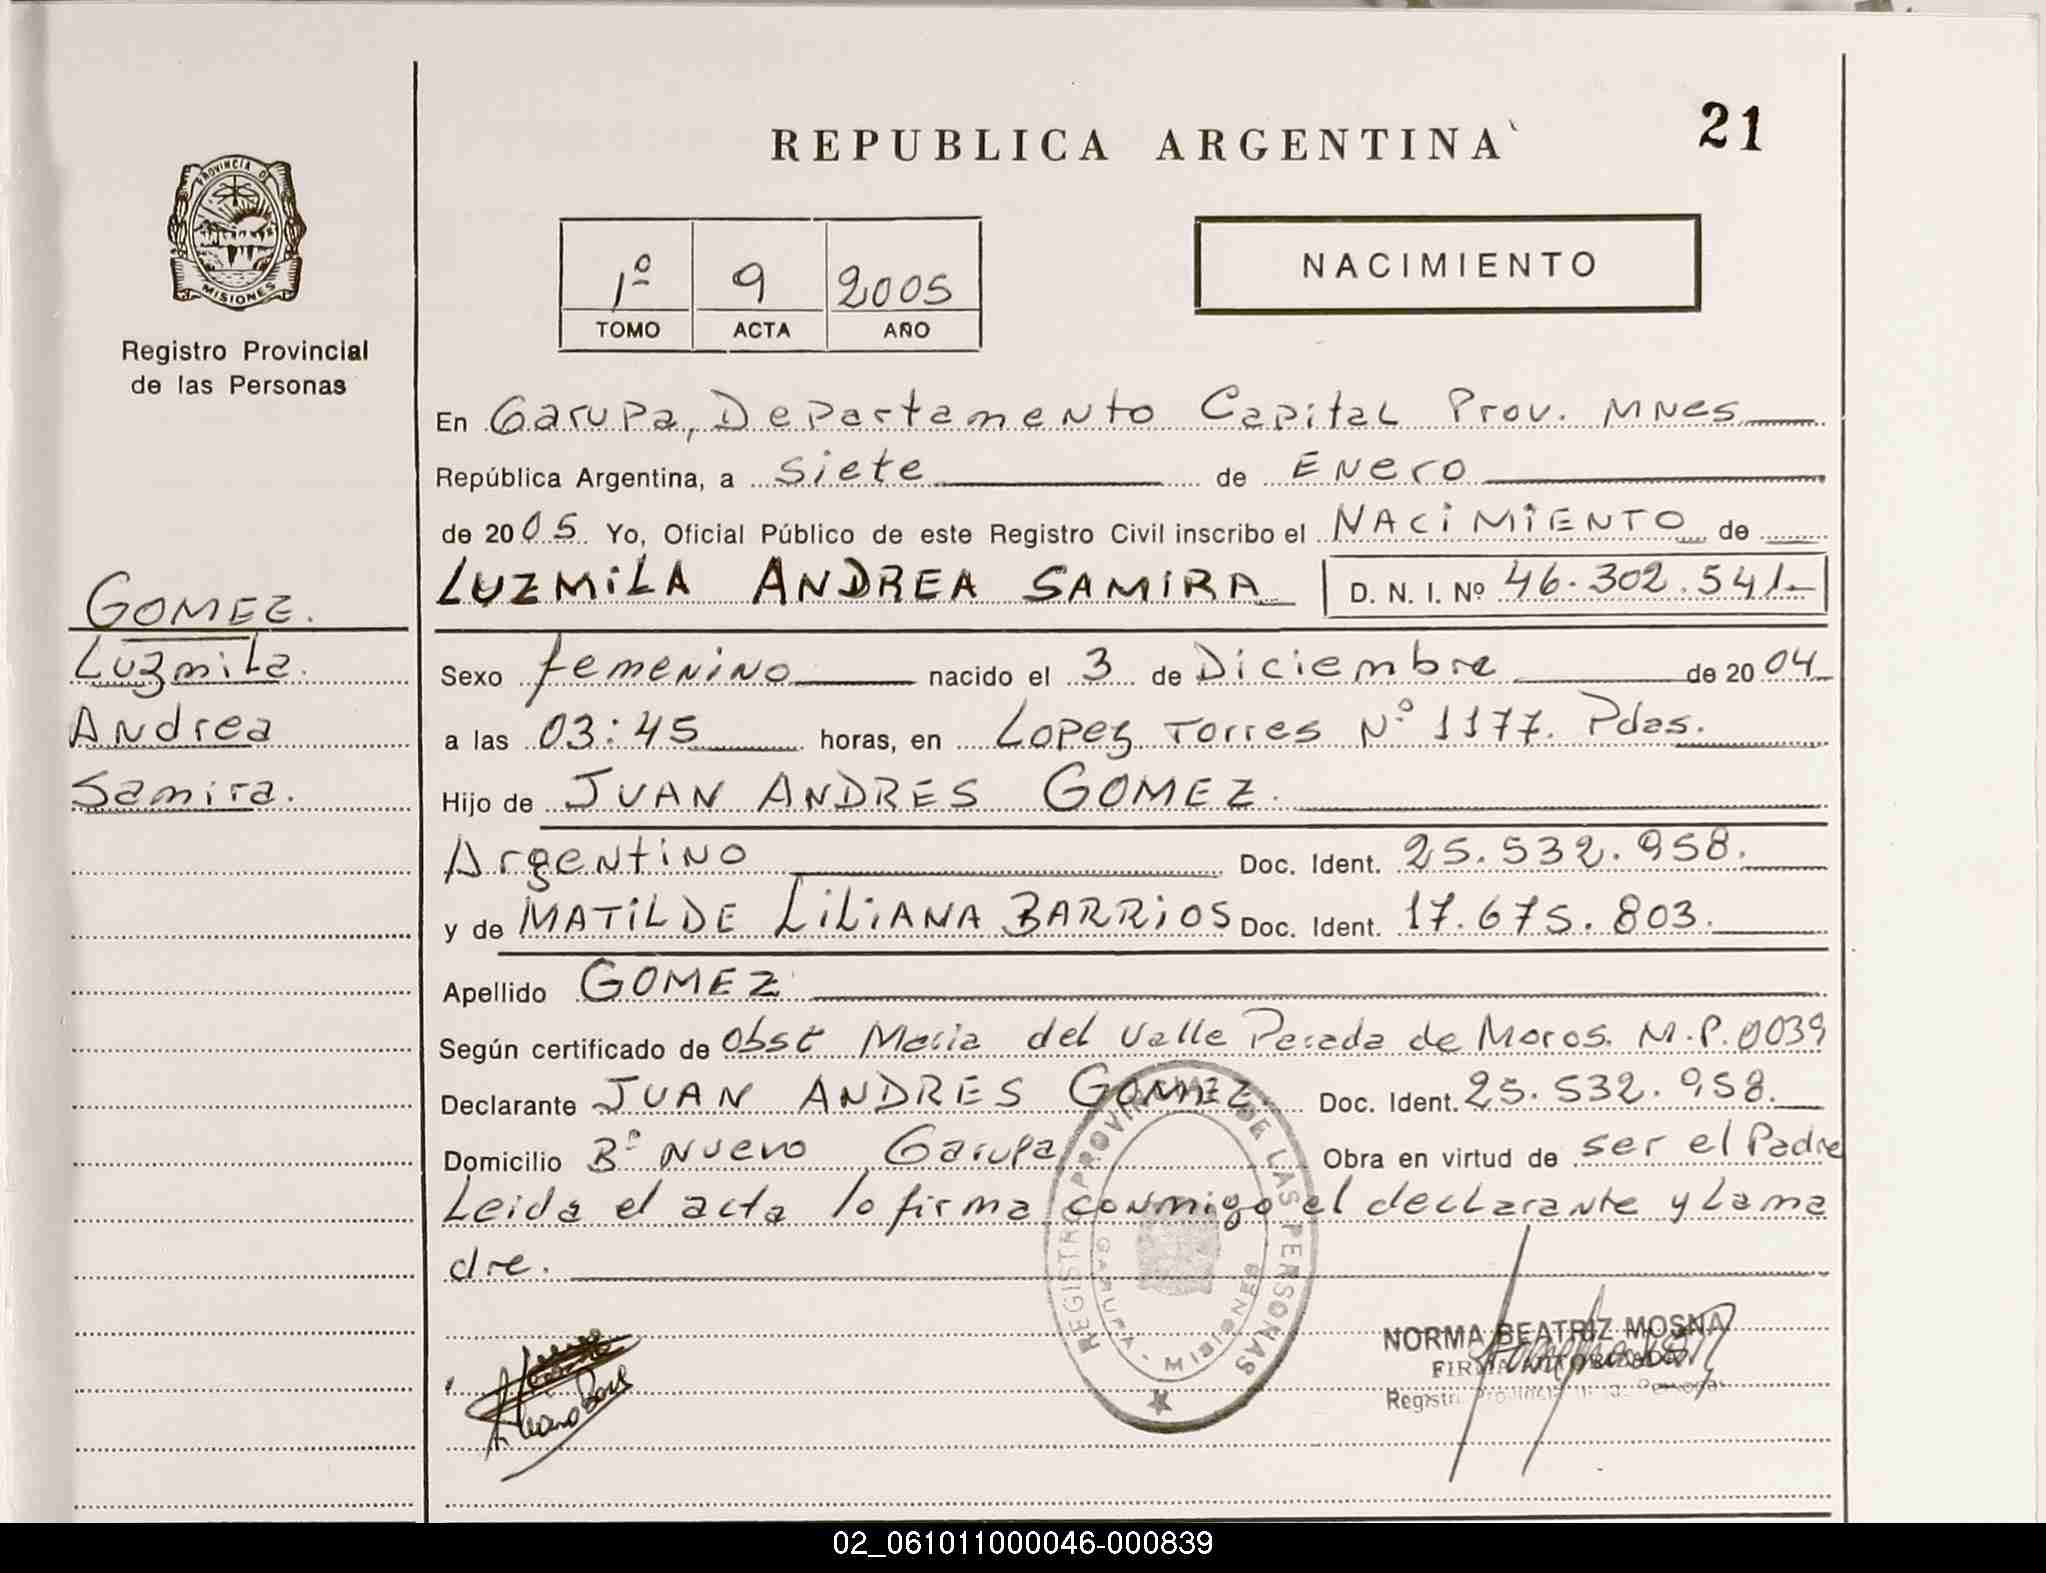 21
REPUBLICA ARGENTINA
PROVINCIA DE
MISIONES
Registro Provincial
de las Personas
1º 9 2005
TOMO ACTA AÑO
NACIMIENTO
En Garupa, Departamento Capital Prov. MNES
República Argentina, a siete de Enero
de 2005 Yo, Oficial Público de este Registro Civil inscribo el NACIMIENTO de
LUZMILA ANDREA SAMIRA D. N. I. Nº 46.302.541.-
GOMEZ.
Luzmila.
Andrea
Samira.
Sexo femenino nacido el 3 de Diciembre de 2004
a las 03:45 horas, en Lopez Torres Nº 1177. Pdas.
Hijo de JUAN ANDRES GOMEZ.
Argentino Doc. Ident. 25.532.958.
y de MATILDE LILIANA BARRIOS Doc. Ident. 17.675.803.
Apellido GOMEZ
Según certificado de Obst Maria del Valle Parada de Moros. M.P. 0039
Declarante JUAN ANDRES GOMEZ. Doc. Ident. 25.532.958.
Domicilio Bº Nuevo Garupa Obra en virtud de ser el Padre
Leida el acta lo firma conmigo el declarante y la ma
dre.
REGISTRO PROVINCIAL DE LAS PERSONAS
GARUPA - MISIONES
NORMA BEATRIZ MOSNA
FIRMA AUTORIZADA
Registro Provincial de las Personas
02_061011000046-000839